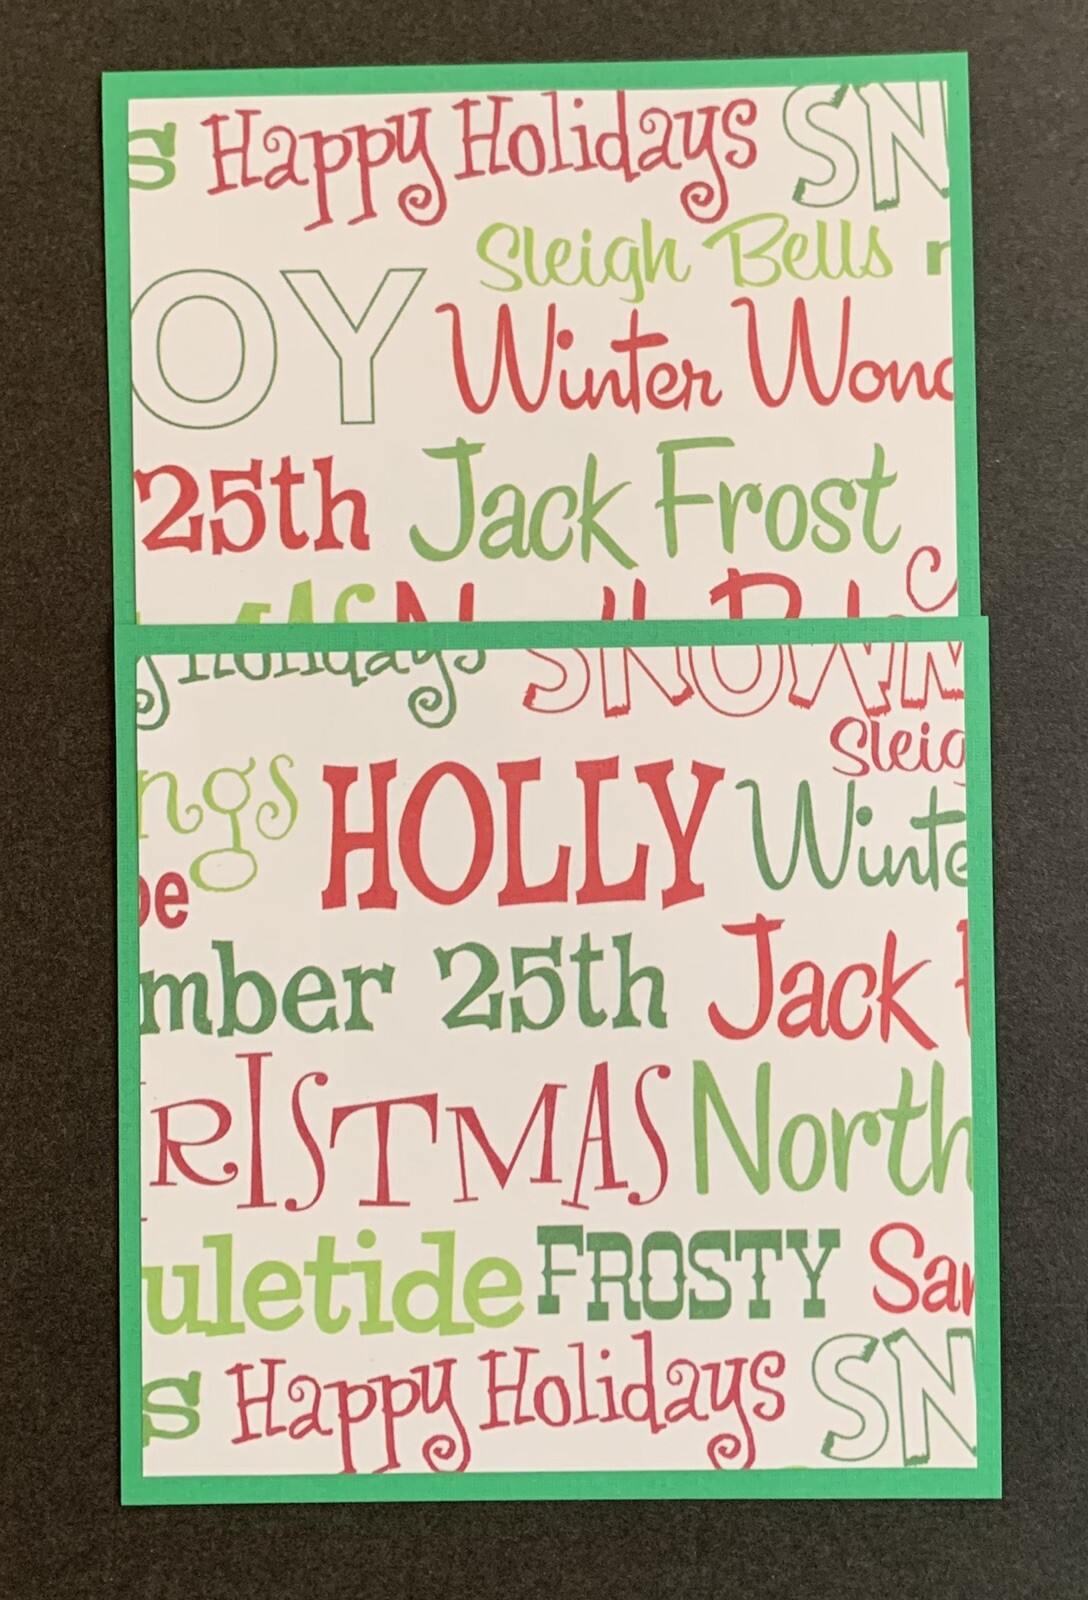 s Happy Holidays SN
Sleigh Bells
OY Winter Won
25th Jack Frost
mas North Pole
y Holidays SNOWM
Sleig
ngs HOLLY Winte
be
mber 25th Jack F
RISTMAS North
uletide FROSTY San
s Happy Holidays SN